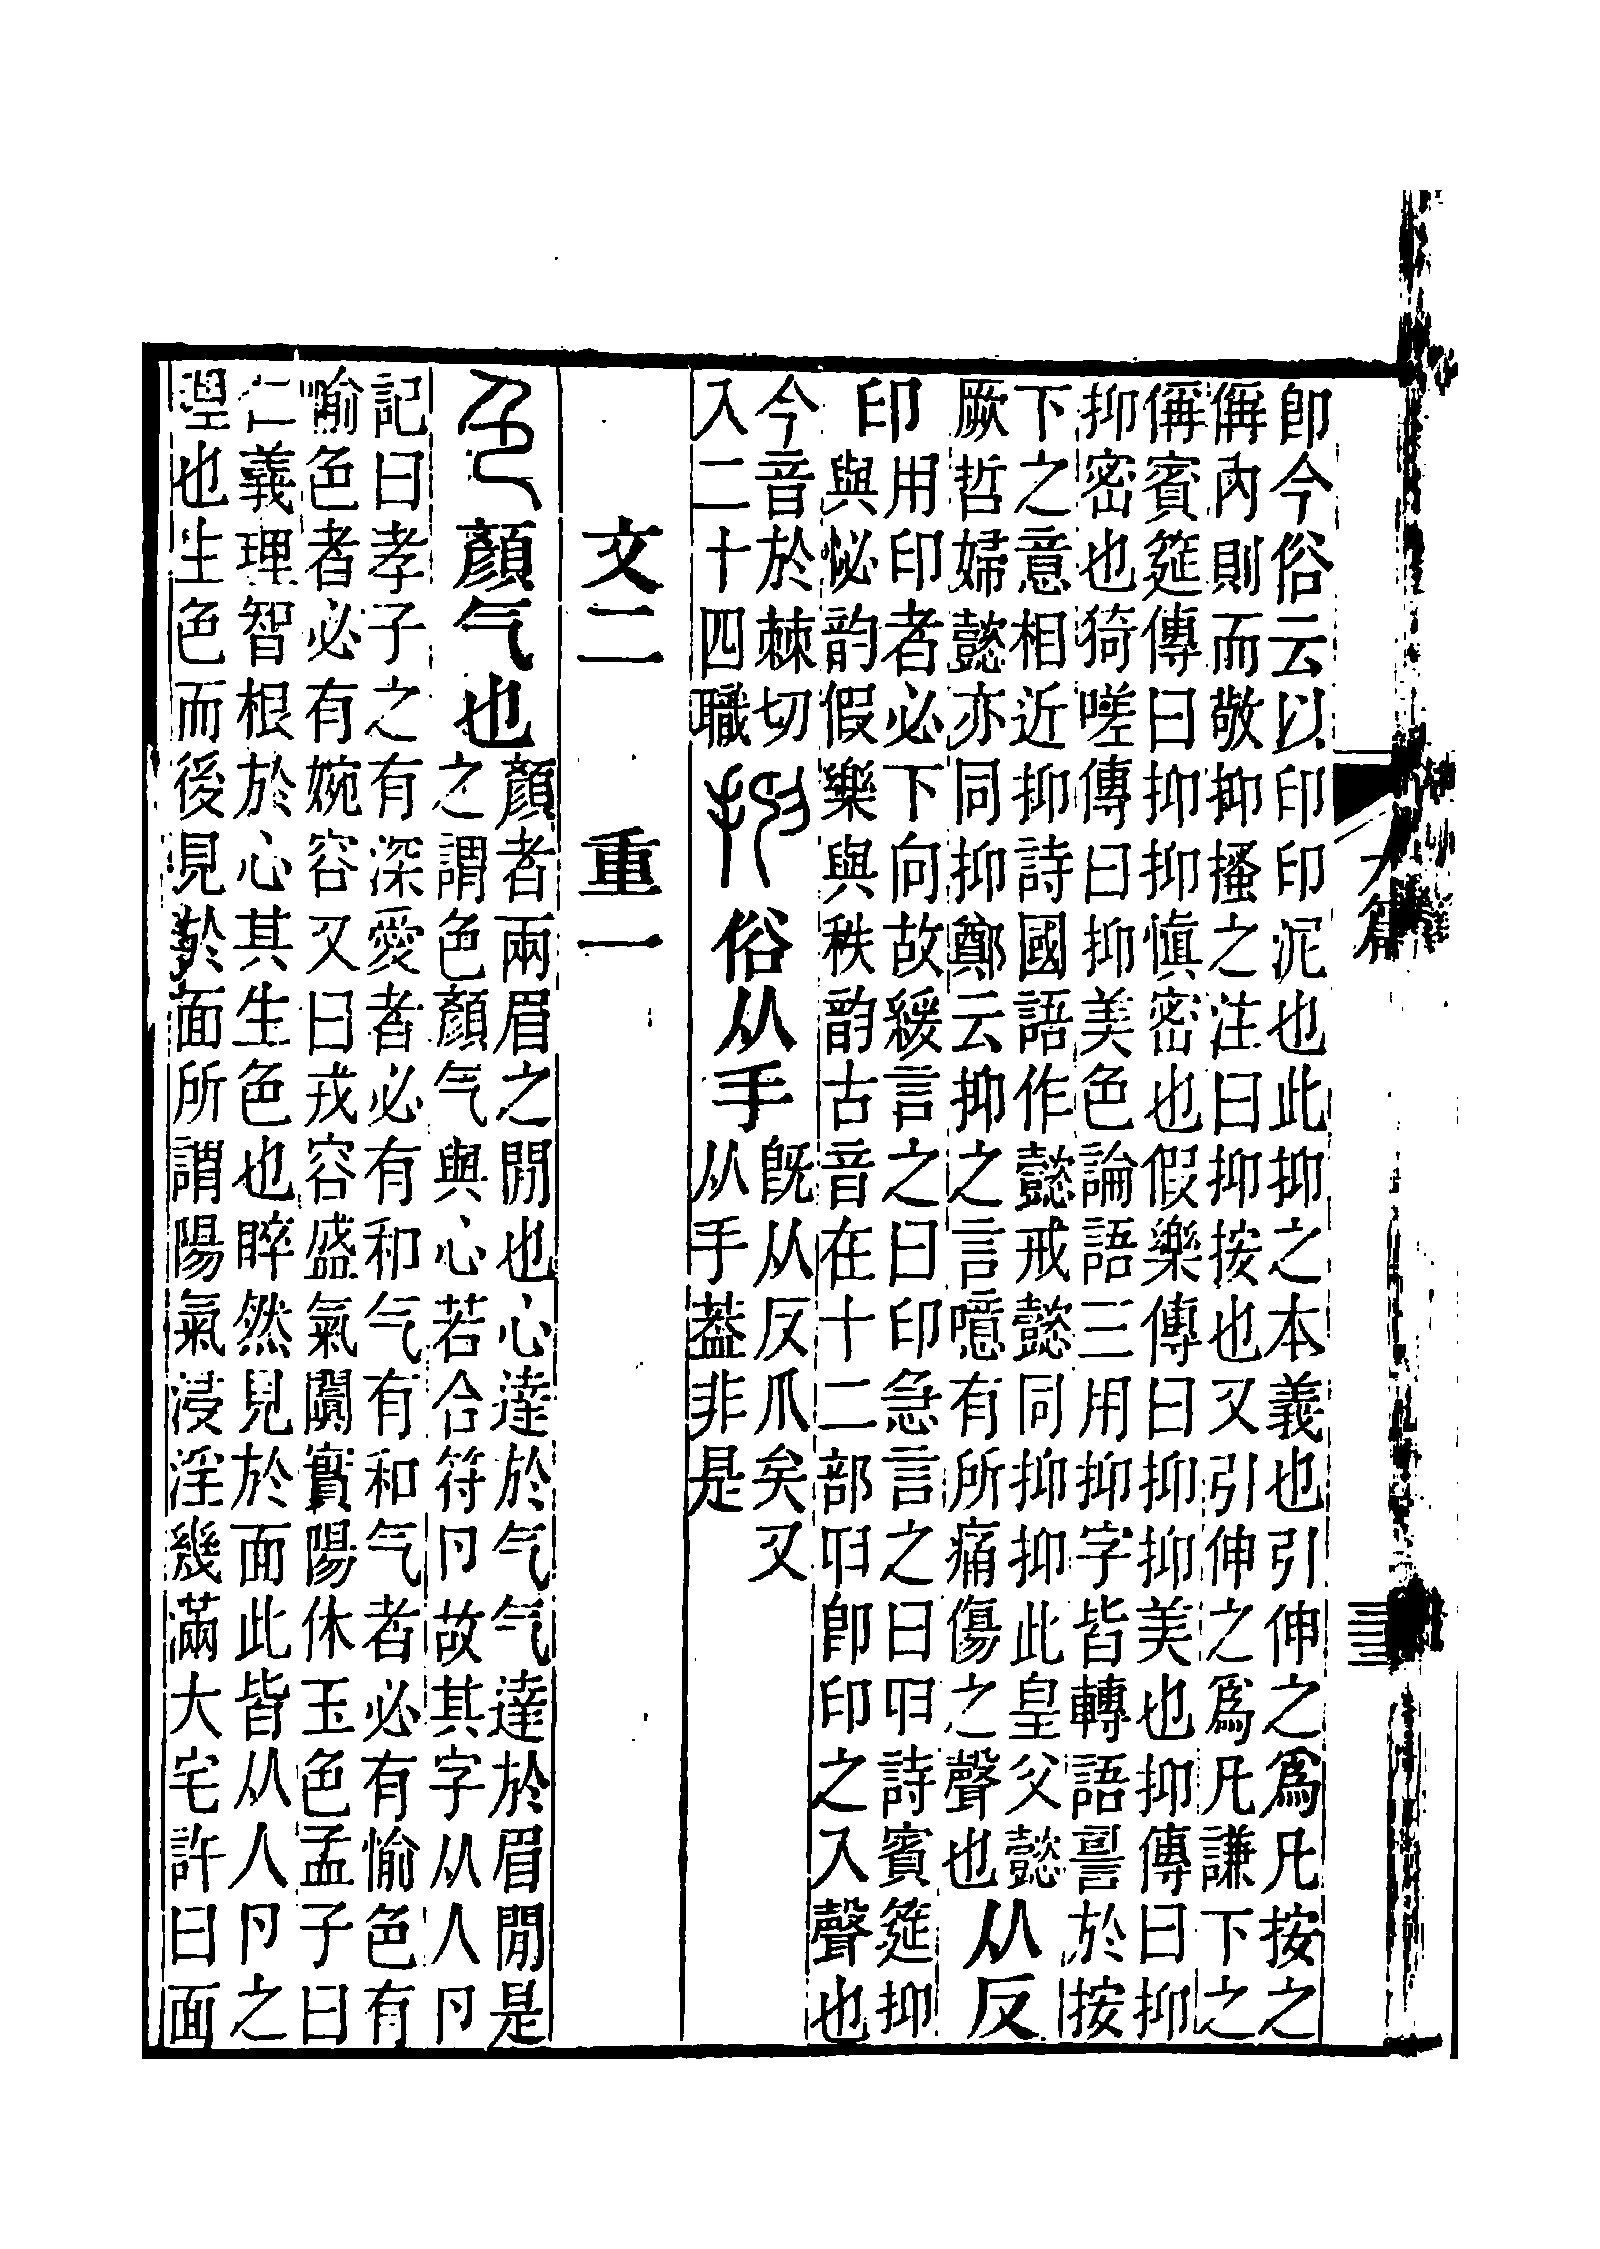 卽今俗云以印印泥也此抑之本義也引伸之爲凡按之
偁內則而敬抑搔之注曰抑按也又引伸之爲凡謙下之
偁賓筵傳曰抑抑愼密也假樂傳曰抑抑美也抑傳曰抑
抑密也猗嗟傳曰抑美色論語三用抑字皆轉語䛐於按
下之意相近抑詩國語作懿戒懿同抑抑此皇父懿
厥哲婦懿亦同抑鄭云抑之言噫有所痛傷之聲也
从反
印
用印者必下向故緩言之曰印急言之曰𠨍詩賓筵抑
與怭韵假樂與秩韵古音在十二部𠨍卽印之入聲也
今音於棘切
入二十四職
抑俗从手
旣从反爪矣又
从手葢非是
文二 重一
色顏气也
顏者兩眉之閒也心達於气气達於眉閒是
之謂色顏气與心若合符卪故其字从人卪
記曰孝子之有深愛者必有和气有和气者必有愉色有
愉色者必有婉容又曰戎容盛氣闐實陽休玉色孟子曰
仁義理智根於心其生色也睟然見於面此皆从人卪之
理也生色而後見於面所謂陽氣浸淫幾滿大宅許曰面